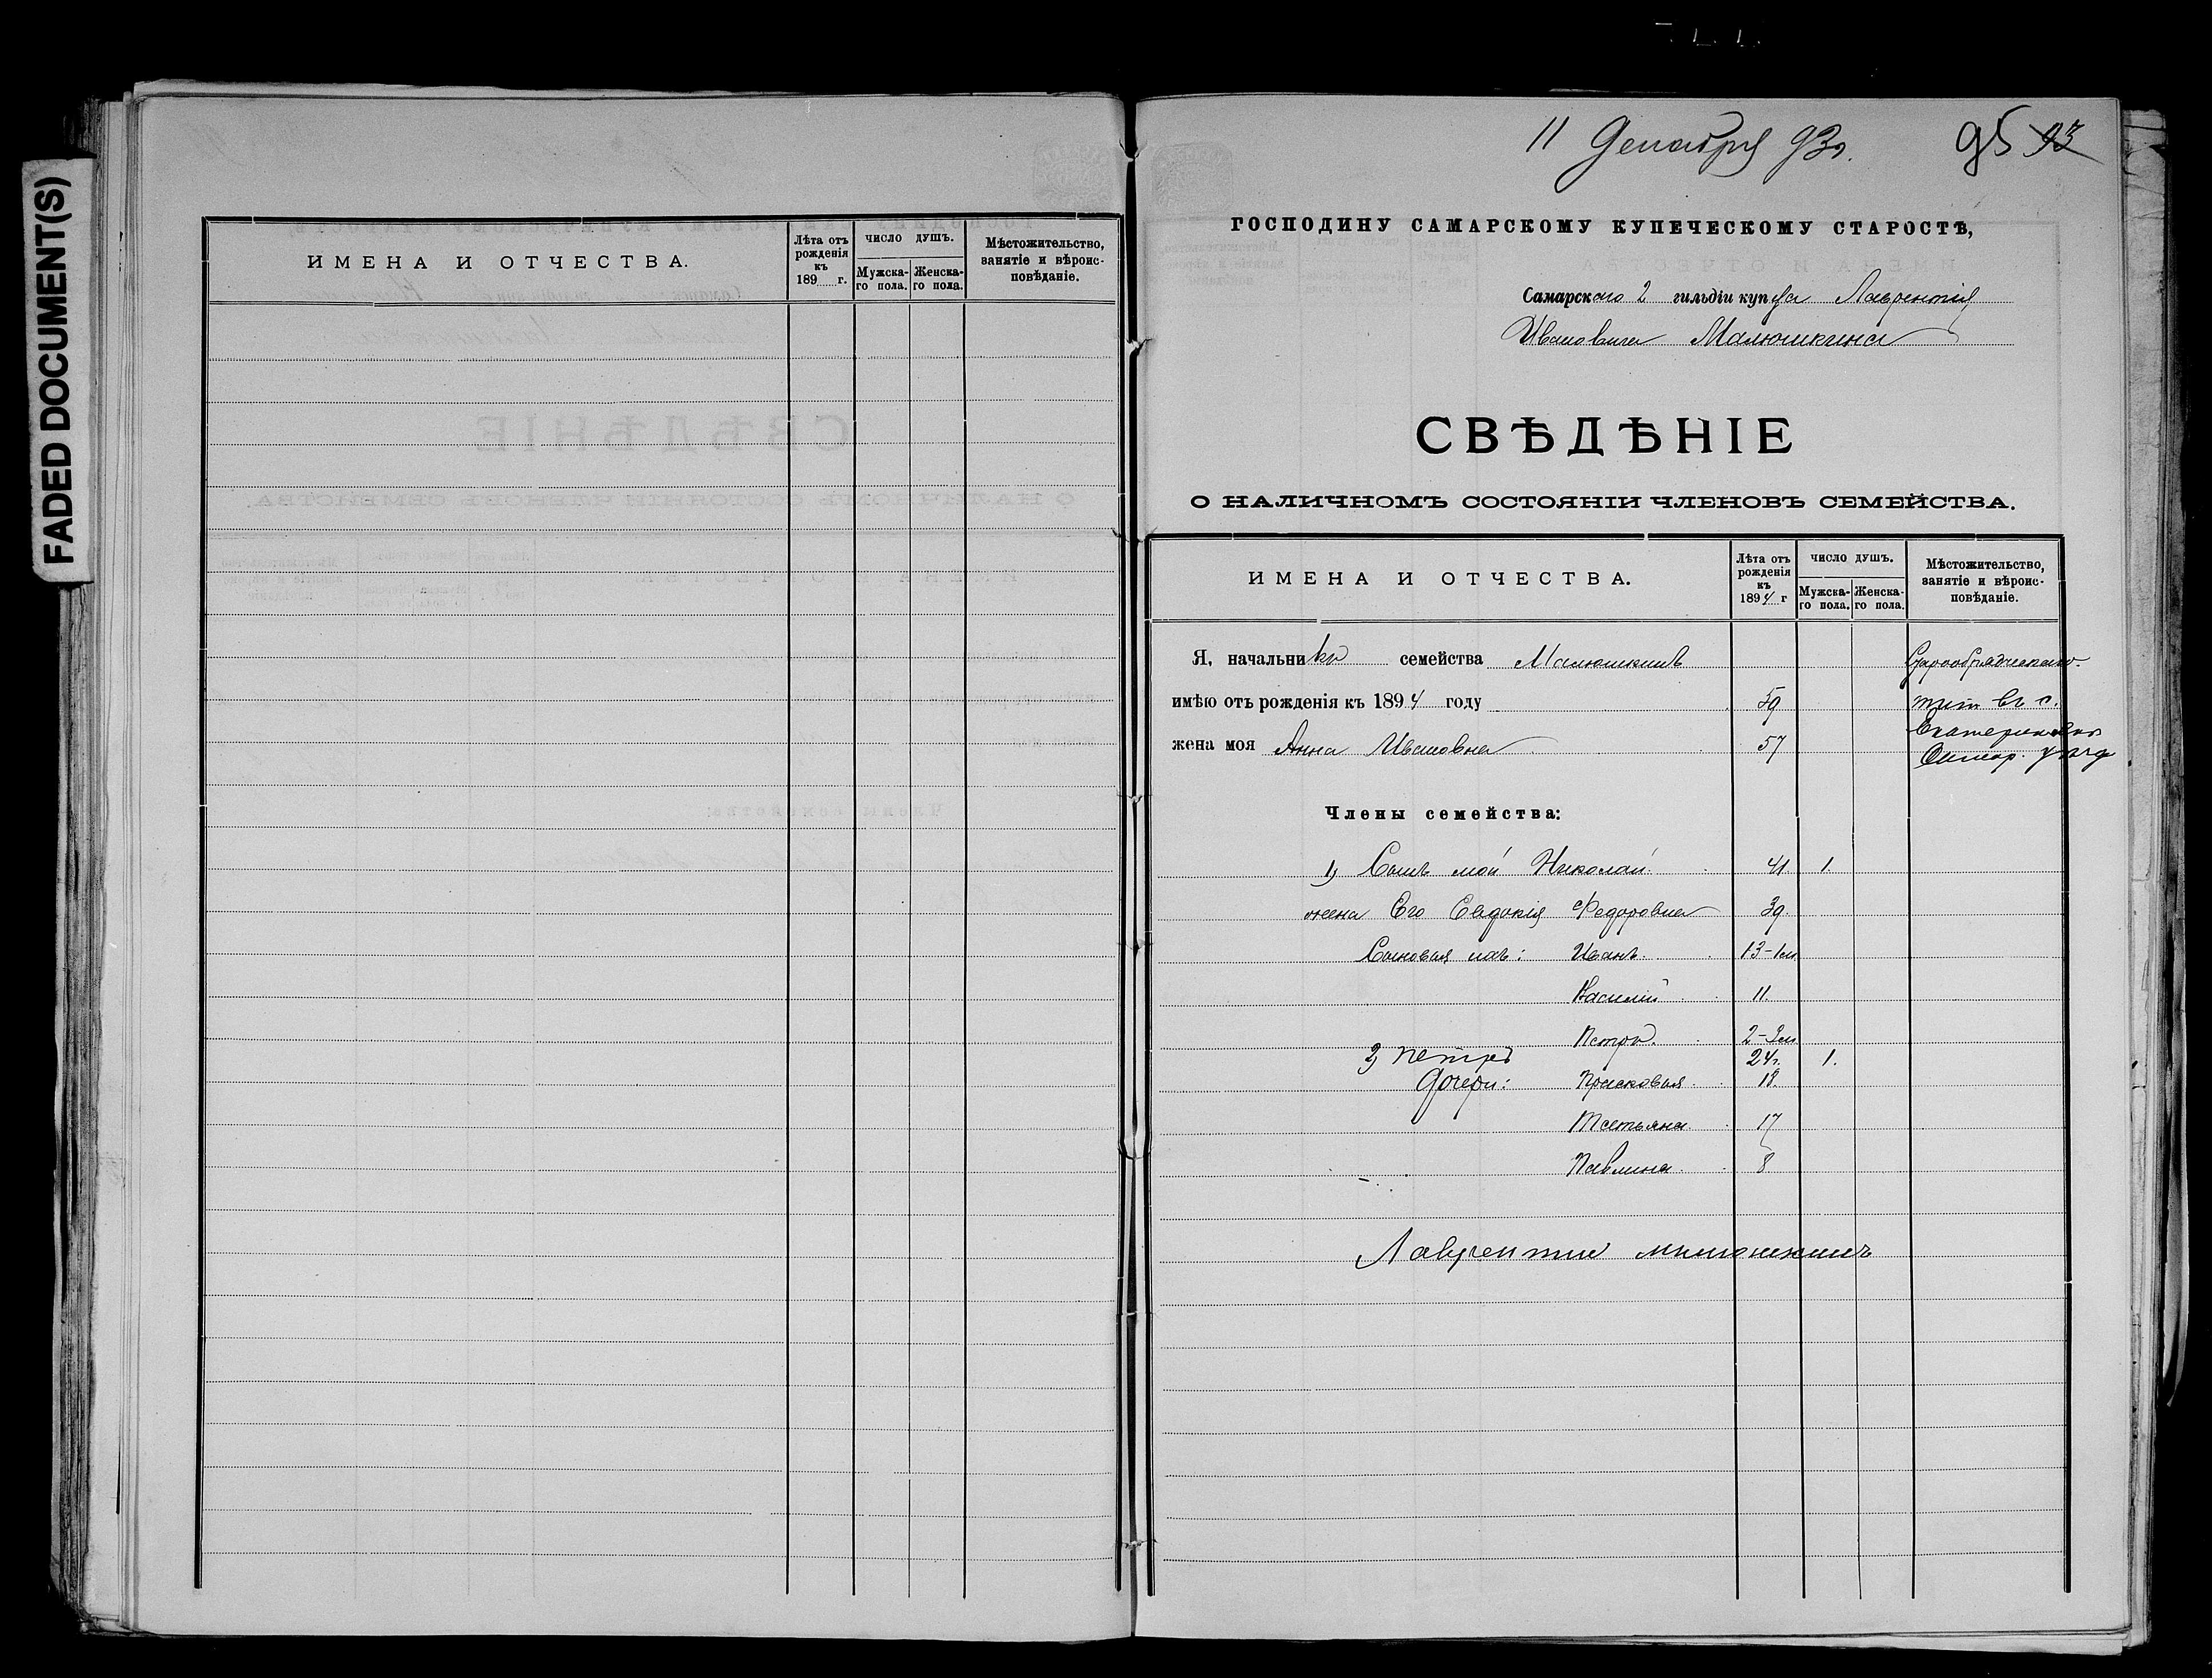 FADED DOCUMENT(S)
ИМЕНА И ОТЧЕСТВА.
Лѣта отъ рожденія къ 189 г.
ЧИСЛО ДУШЪ.
Мужска-го пола.
Женска-го пола.
Мѣстожительство, занятіе и вѣроис-повѣданіе.
11 Декабря 93г.
95 93
ГОСПОДИНУ САМАРСКОМУ КУПЕЧЕСКОМУ СТАРОСТѢ,
Самарскаго 2 гильдіи купца Лаврентія
Ивановича Малюшкина
СВѢДѢНІЕ
О НАЛИЧНОМЪ СОСТОЯНІИ ЧЛЕНОВЪ СЕМЕЙСТВА.
ИМЕНА И ОТЧЕСТВА.
Лѣта отъ рожденія къ 1894 г
ЧИСЛО ДУШЪ.
Мужска-го пола.
Женска-го пола.
Мѣстожительство, занятіе и вѣроис-повѣданіе.
Я, начальникъ семейства Малюшкинъ
Старообрядческаго.
имѣю отъ рожденія къ 1894 году 59
жив. въ с.
жена моя Анна Ивановна 57
Екатериновкѣ
Самар. уѣзда
Члены семейства:
1) Сынъ мой Николай 41 1.
жена Его Евдокія Федоровна 39.
Сыновья ихъ: Иванъ. 13-1м.
Василій 11.
Петръ. 2-3м
2) Петръ 24г. 1.
Дочери: Прасковья 18.
Татьяна 17
Павлина 8
Лаврентий Малюшкинъ